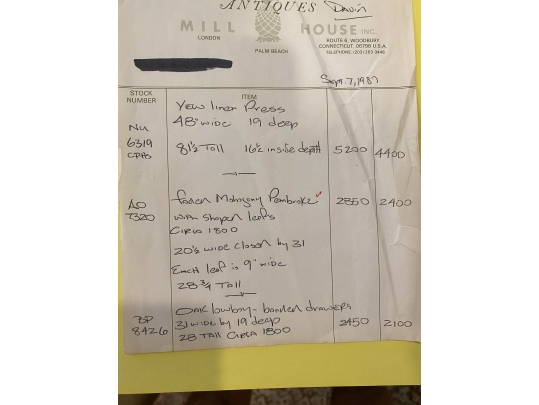 ANTIQUES David
MILL HOUSE INC.
LONDON
PALM BEACH
ROUTE 6, WOODBURY
CONNECTICUT, 06798 U.S.A.
TELEPHONE: (203) 263-3446
Sept. 7, 1987
STOCK NUMBER ITEM
Yew linen Press
48" wide 19 deep
NU
6319
81½ Tall 16½ inside depth 5200 4400
AO
7320
faded Mahogany Pembroke 2850 2400
with shaped leafs
Circa 1800
20½ wide closed by 31
Each leaf is 9" wide
28 3/4 Tall
Oak lowboy - banded drawers
31 wide by 19 deep 2450 2100
8426
28 Tall Circa 1800